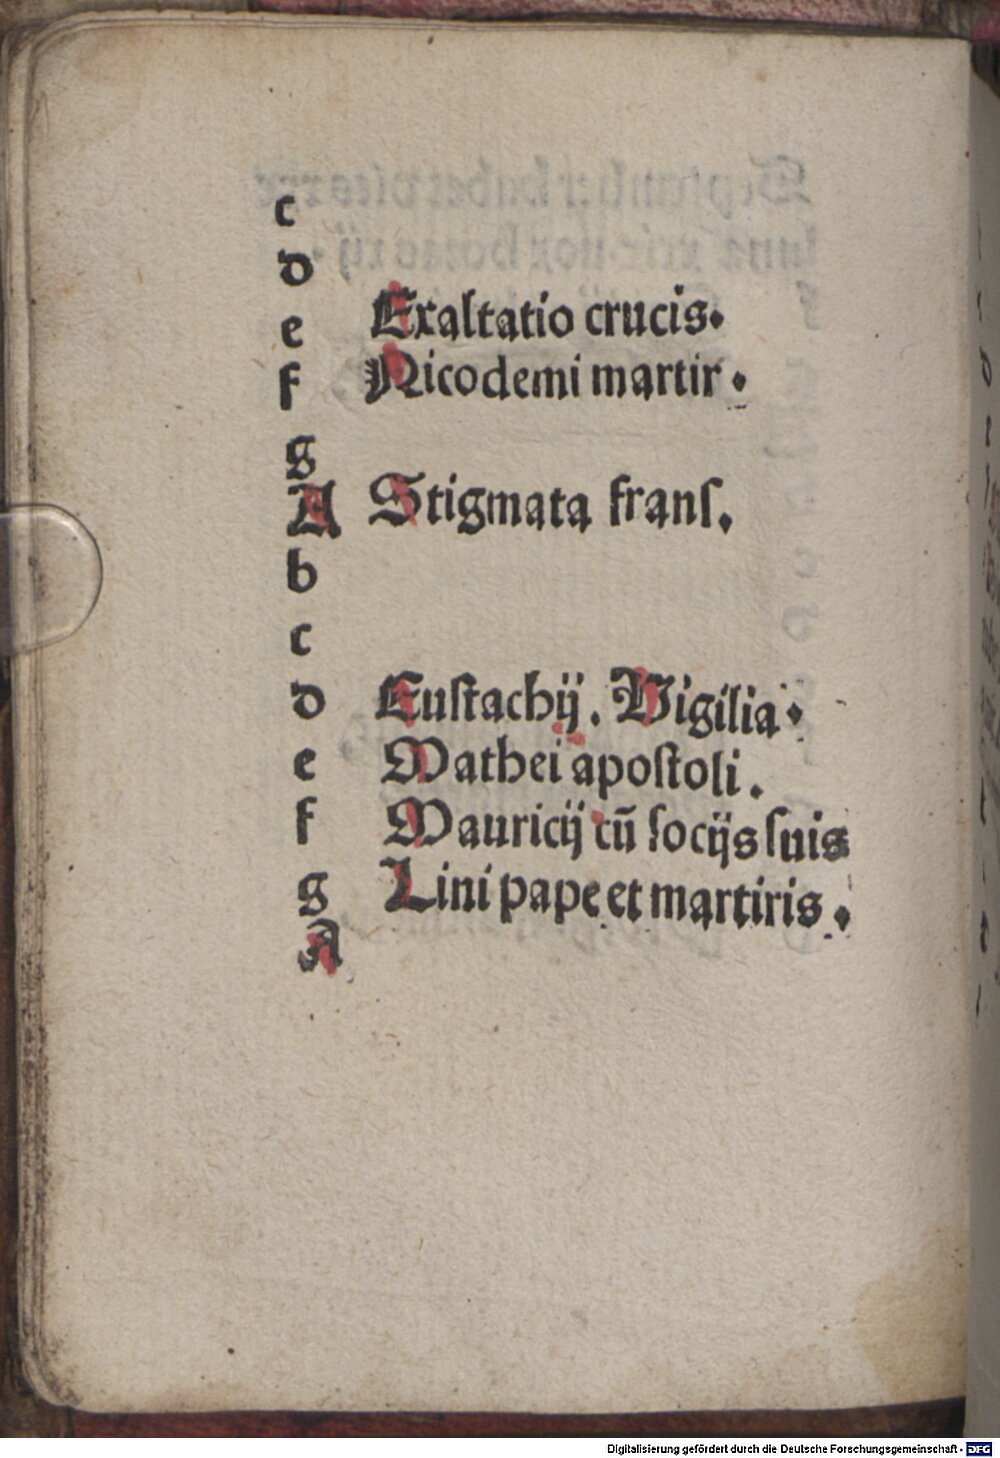 c
d
e Exaltatio crucis.
f Nicodemi martir.
g
A Stigmata franſ.
b
c
d Euſtachij. Vigilia.
e Mathei apoſtoli.
f Mauricij cū ſocijs ſuis
g Lini pape et martiris.
A
Digitalisierung gefördert durch die Deutsche Forschungsgemeinschaft - DFG